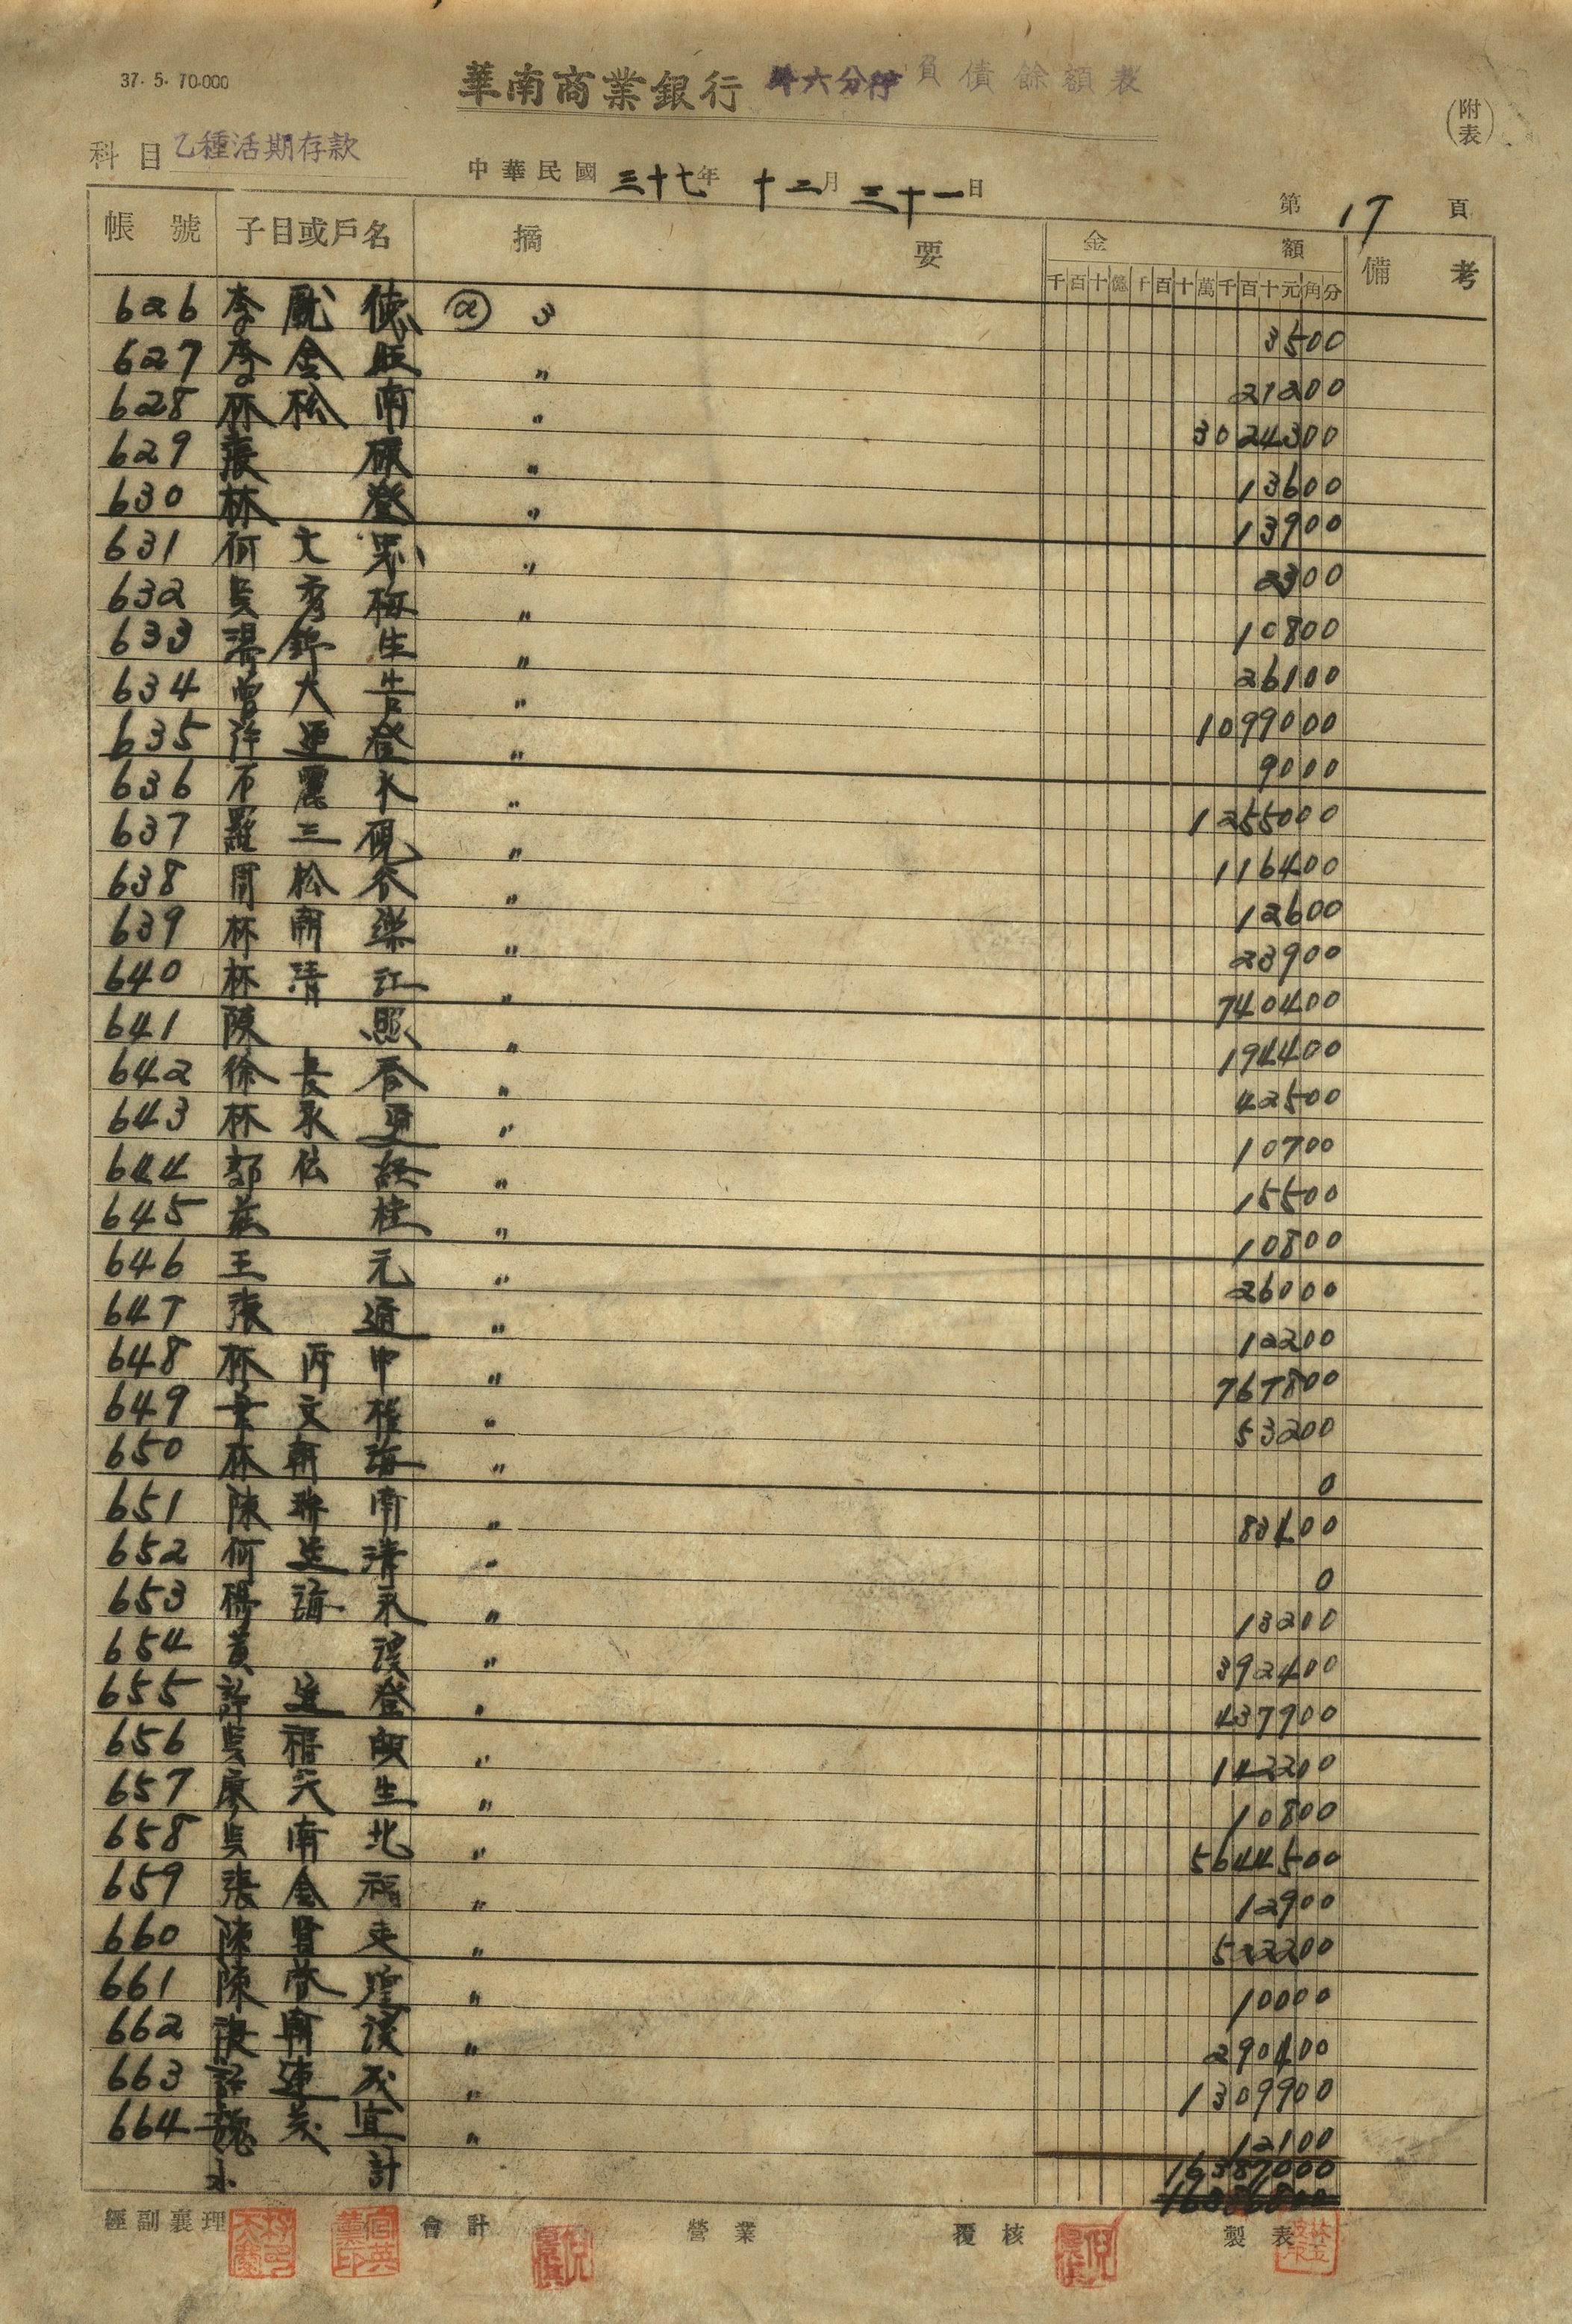 37. 5. 70.000
華南商業銀行 斗六分行 負債餘額表
(附表)
科目 乙種活期存款
中華民國 三十七年 十二月 三十一日
第 17 頁
帳號 子目或戶名 摘要 金額 備考
千百十億千百十萬千百十元角分
626 李 德 3 3500
627 李金旺 〃 21200
628 林松南 〃 3024300
629 張 〃 13600
630 林登 〃 13900
631 何文 〃 2300
632 吳秀梅 〃 10800
633 湯錦生 〃 26100
634 曾大告 〃 1099000
635 許運登 〃 9000
636 石麗水 〃 1255000
637 羅三硯 〃 116400
638 周松 〃 12600
639 林朝樂 〃 23900
640 林清江 〃 740400
641 陳照 〃 194400
642 徐長香 〃 42500
643 林永 〃 10700
644 郭 〃 15500
645 莊桂 〃 10800
646 王元 〃 26000
647 張通 〃 12200
648 林丙申 〃 767800
649 文 〃 53200
650 林朝海 〃 0
651 陳 南 〃 83400
652 何 清 〃 0
653 楊海永 〃 13200
654 黃溪 〃 392400
655 許 登 〃 437900
656 吳福 〃 142200
657 廖天生 〃 10800
658 吳南北 〃 5644500
659 張金福 〃 12900
660 陳賢 〃 522200
661 陳 〃 10000
662 張朝溪 〃 290400
663 許連成 〃 1309900
664 魏美宜 〃 12100
小計 16387000
經副襄理 會計 營業 覆核 製表